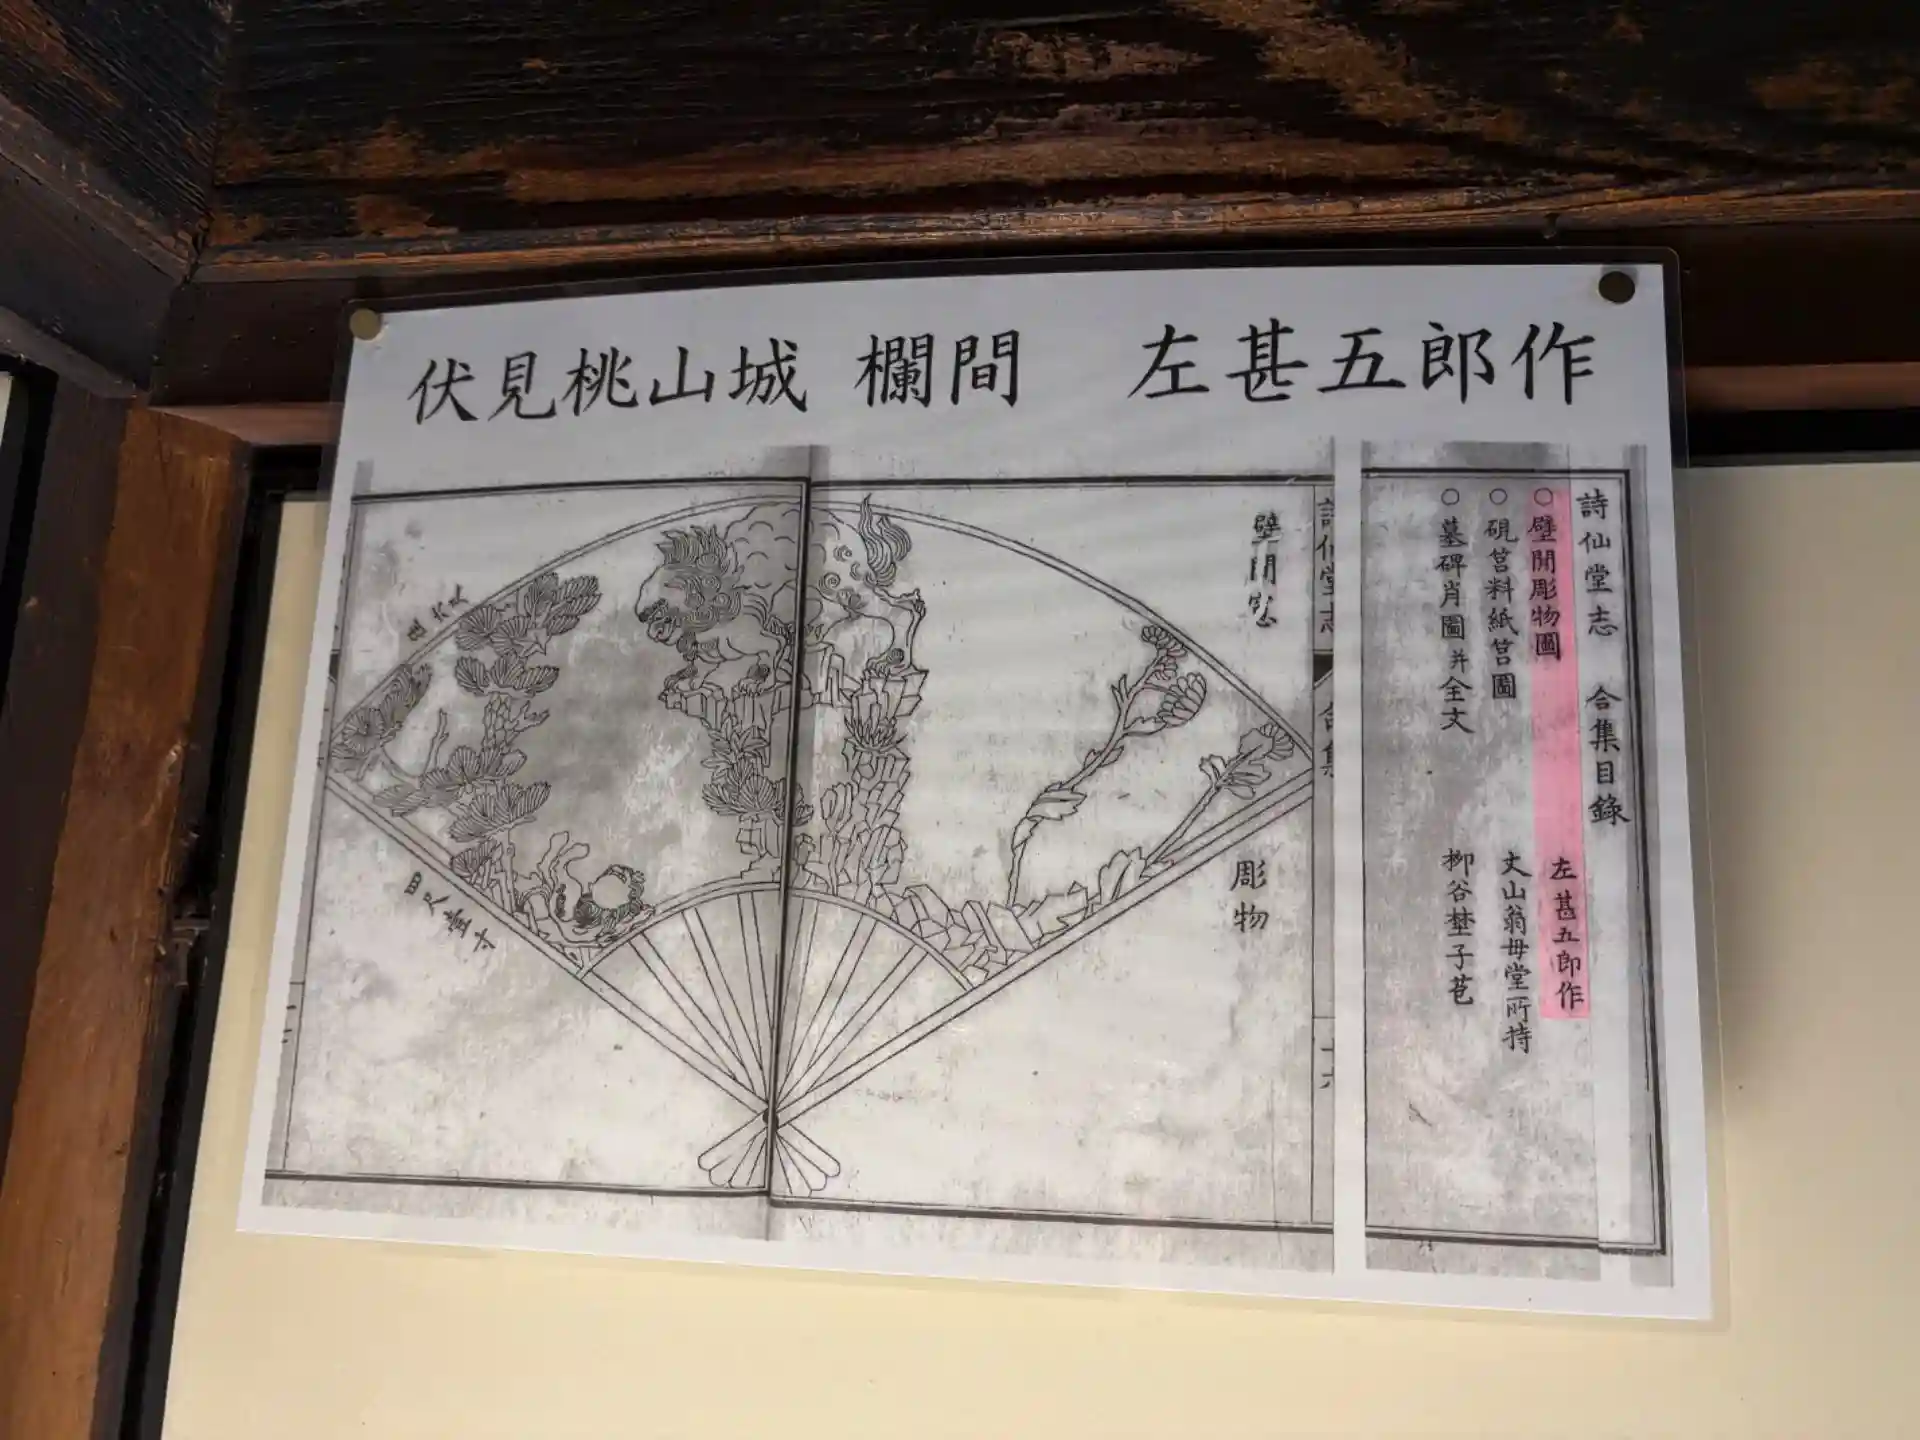 伏見桃山城 欄間 左甚五郎作
詩仙堂志 合集目錄
○壁間彫物圖 左甚五郎作
○硯筥料紙筥圖 丈山翁母堂所持
○墓碑肖圖并全文 柳谷埜子苞
詩仙堂志
合集
十六
壁間
彫物
四尺壹寸